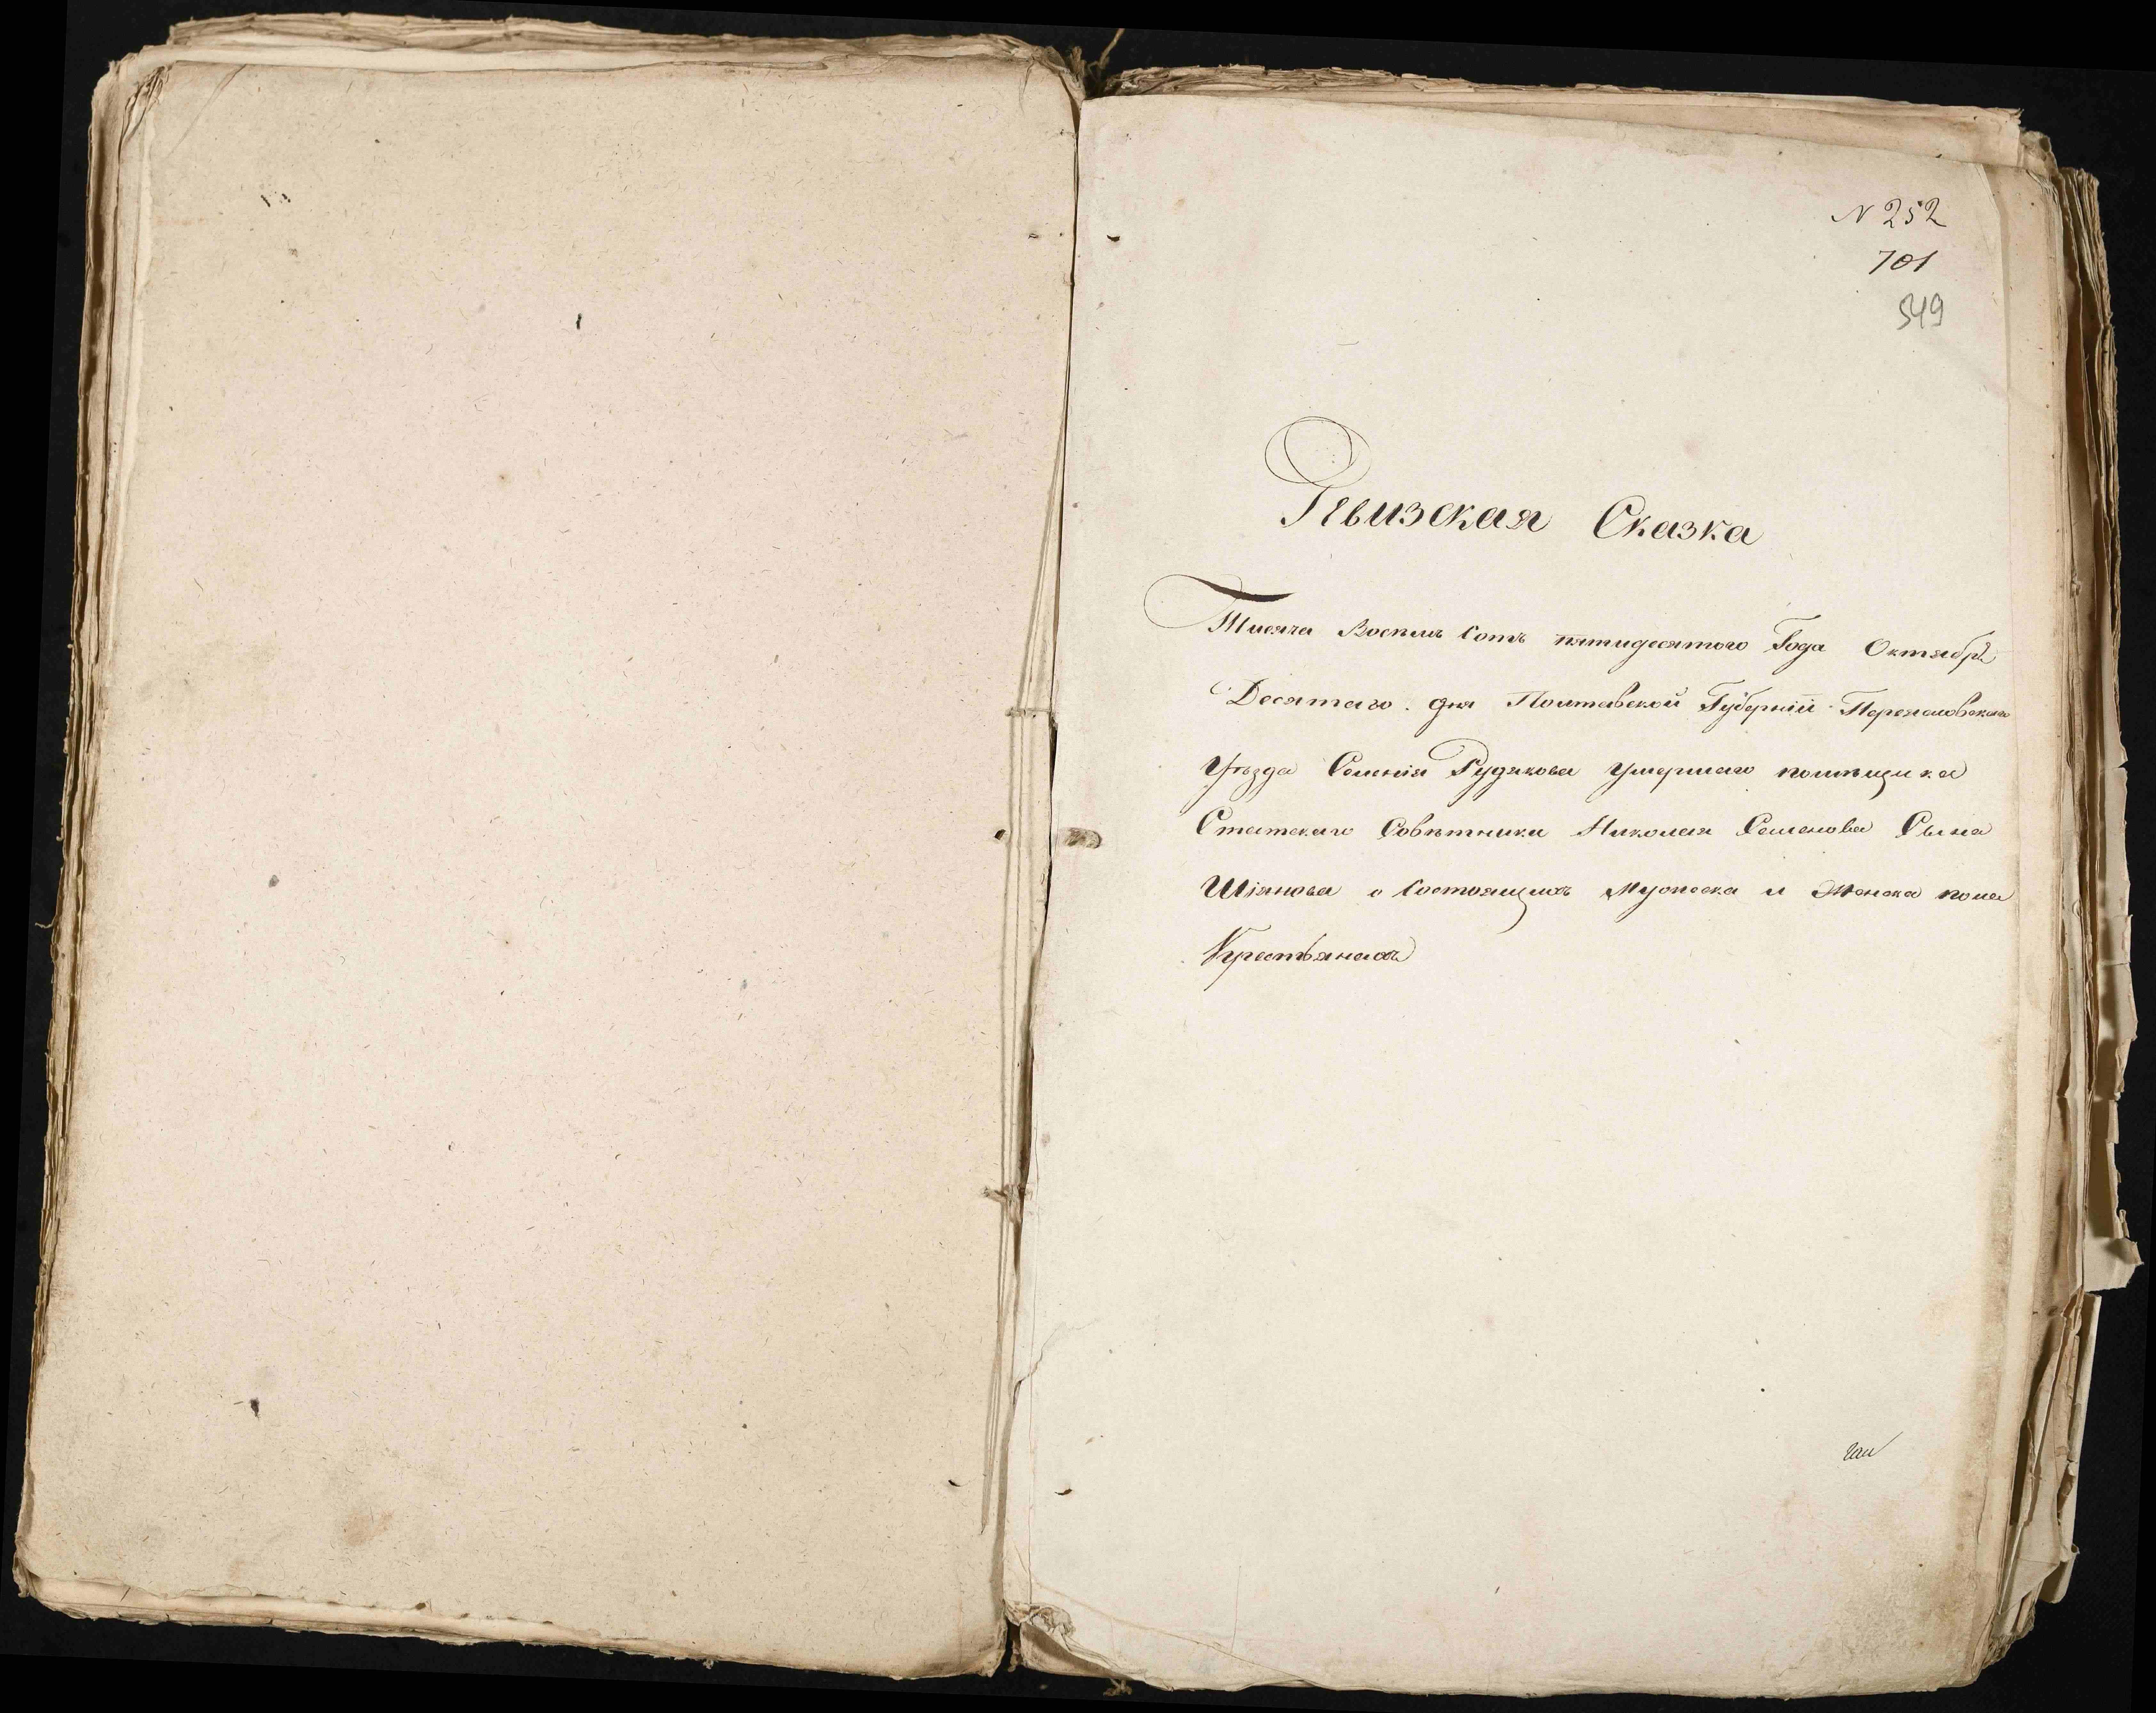 N 252
701
549
Ревизская Сказка
Тисяча Восемь Сотъ пятидесятого Года Октябр
Десятаго дня Полтавской Губерніи Переясловскаго
Уѣзда Селенія Рудякова Умершаго помѣщика
Статскаго Совѣтника Николая Семенова Сына
Шіянова о Состоящихъ Мужеска и Женска пола
Крестьянахъ